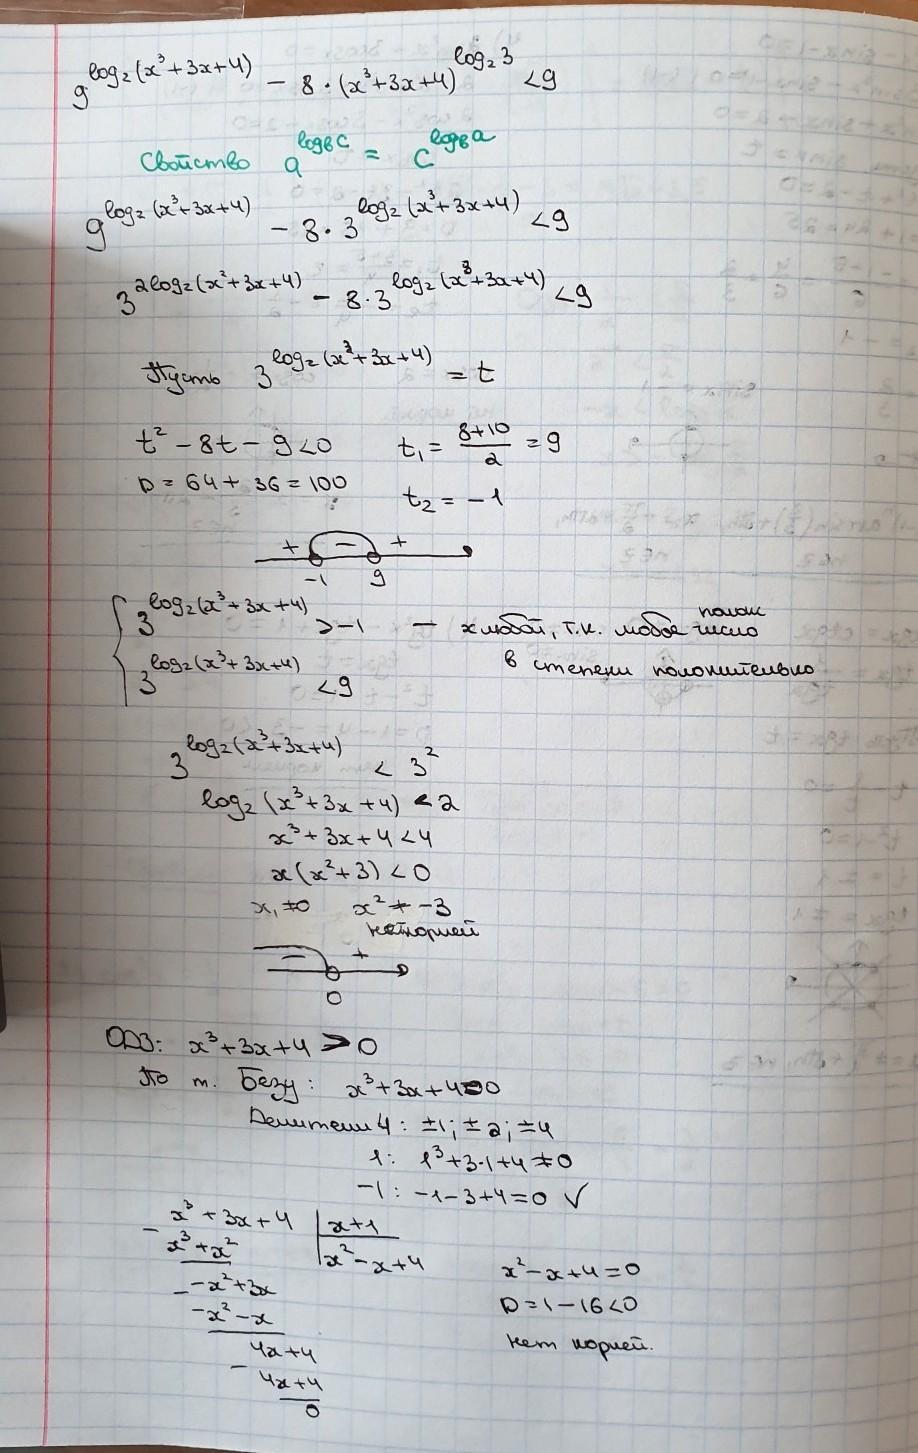 9^(log₂(x³+3x+4)) − 8·(x³+3x+4)^(log₂3) < 9
Свойство a^(log_b c) = c^(log_b a)
9^(log₂(x³+3x+4)) − 8·3^(log₂(x³+3x+4)) < 9
3^(2log₂(x²+3x+4)) − 8·3^(log₂(x³+3x+4)) < 9
Пусть 3^(log₂(x³+3x+4)) = t
t² − 8t − 9 < 0 t₁ = (8+10)/2 = 9
D = 64 + 36 = 100 t₂ = −1
+ − +
−1 9
{ 3^(log₂(x³+3x+4)) > −1 — x любой, т.к. любое полож число
3^(log₂(x³+3x+4)) < 9 в степени положительно
3^(log₂(x³+3x+4)) < 3²
log₂(x³+3x+4) < 2
x³+3x+4 < 4
x(x²+3) < 0
x₁ ≠ 0 x² ≠ −3
нет корней
− +
0
ОДЗ: x³+3x+4 > 0
По т. Безу: x³+3x+4=0
Делители 4: ±1; ±2; ±4
1: 1³+3·1+4 ≠ 0
−1: −1−3+4=0 ✓
− x³+3x+4 | x+1
x³+x² | x²−x+4
− −x²+3x x²−x+4=0
−x²−x D=1−16<0
− 4x+4 нет корней.
4x+4
0